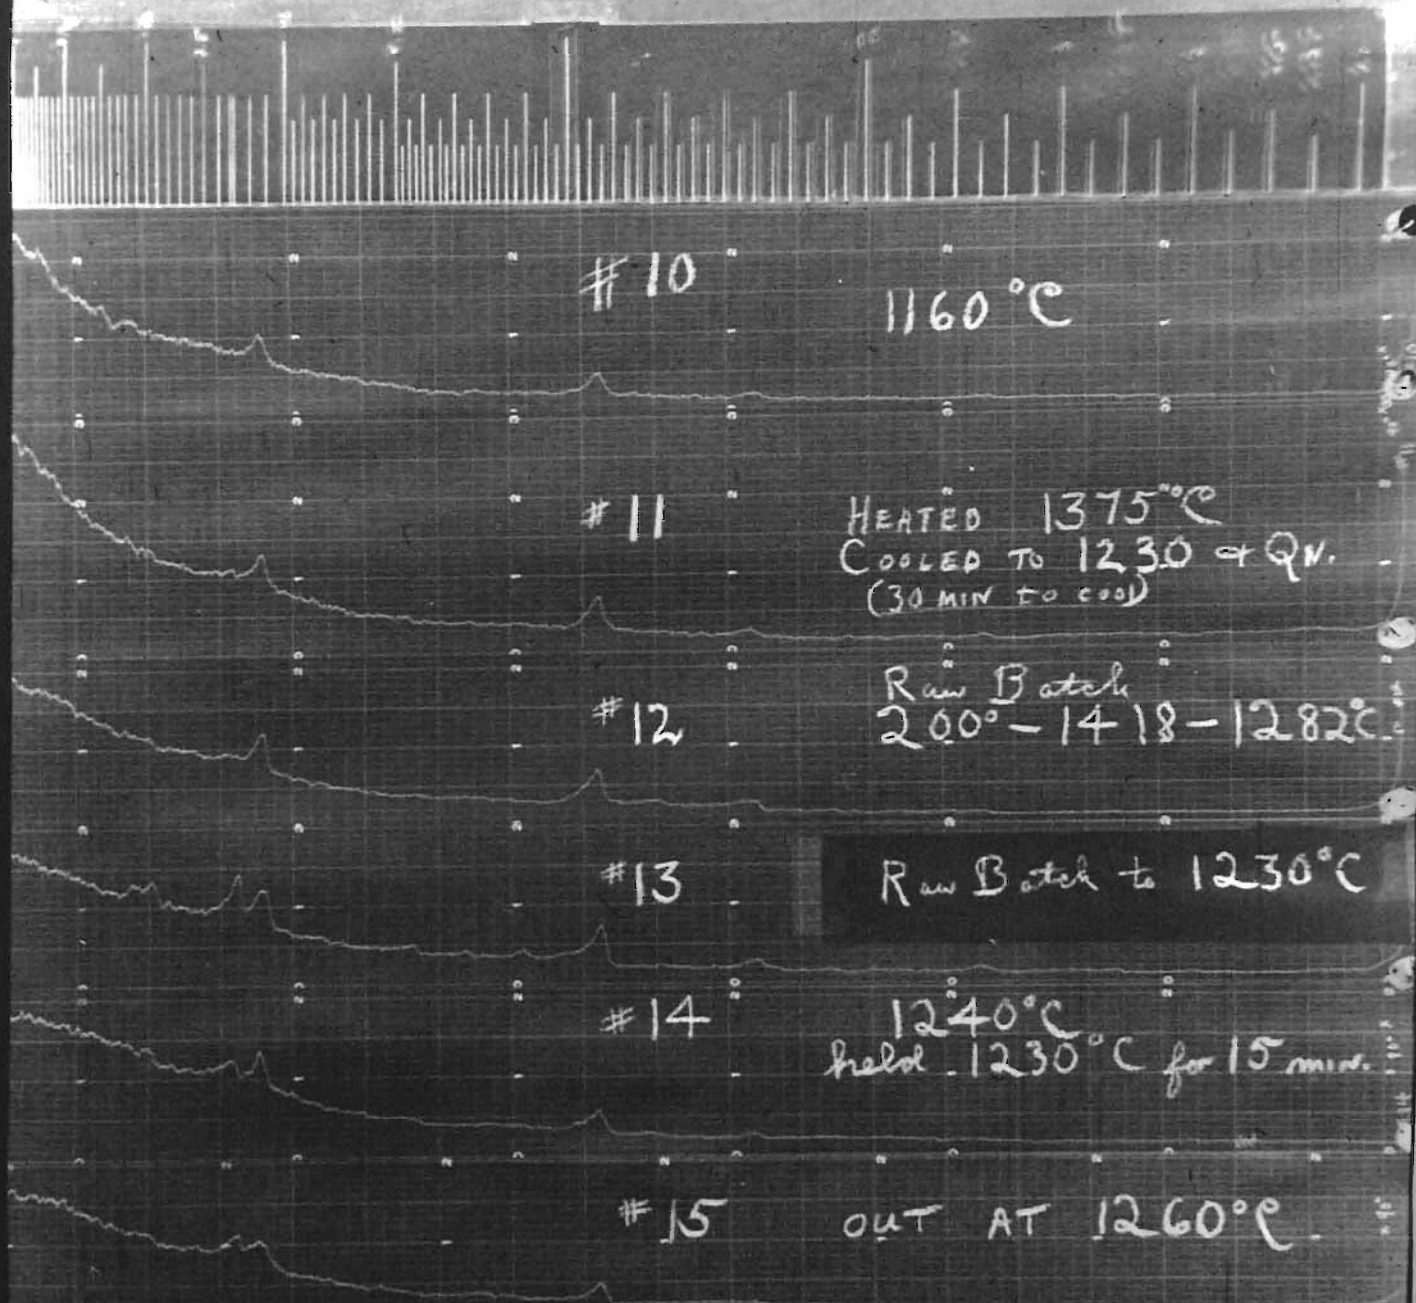 #10
1160°C
#11
HEATED 1375°C
COOLED TO 1230 & QN.
(30 MIN TO COOL)
#12
Raw Batch
200° - 1418 - 1282°C
#13
Raw Batch to 1230°C
#14
1240°C
held 1230°C for 15 min.
#15
OUT AT 1260°C